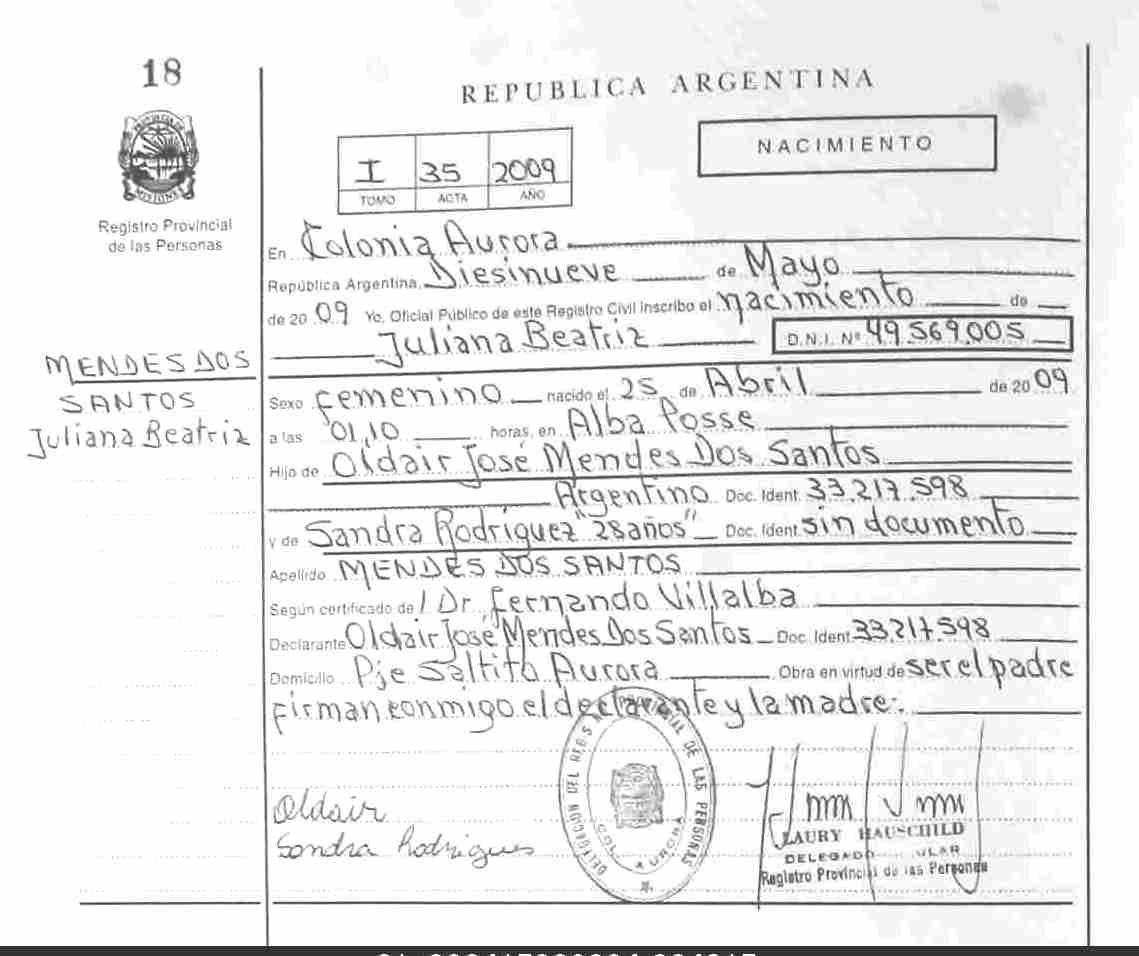 18
REPUBLICA ARGENTINA
NACIMIENTO
I 35 2009
TOMO ACTA AÑO
PROVINCIA DE MISIONES
Registro Provincial
de las Personas
En Colonia Aurora
República Argentina, Diesinueve de Mayo
de 20 09 Yo, Oficial Público de este Registro Civil inscribo el nacimiento de
Juliana Beatriz D.N.I. Nº 49.569.005
MENDES DOS
SANTOS
Juliana Beatriz
Sexo femenino nacido el 25 de Abril de 20 09
a las 01,10 horas, en Alba Posse
Hijo de Oldair José Mendes Dos Santos
Argentino Doc. Ident. 33.217.598
y de Sandra Rodríguez "28 años" Doc. Ident. sin documento
Apellido MENDES DOS SANTOS
Según certificado de / Dr. Fernando Villalba
Declarante Oldair José Mendes Dos Santos Doc. Ident. 33.217.598
Domicilio Pje Saltito Aurora Obra en virtud de ser el padre
firman conmigo el declarante y la madre.
Oldair
Sandra Rodrigues
DELEGACION DEL REGISTRO PROVINCIAL DE LAS PERSONAS
COL. AURORA
LAURY HAUSCHILD
DELEGADO
Registro Provincial de las Personas